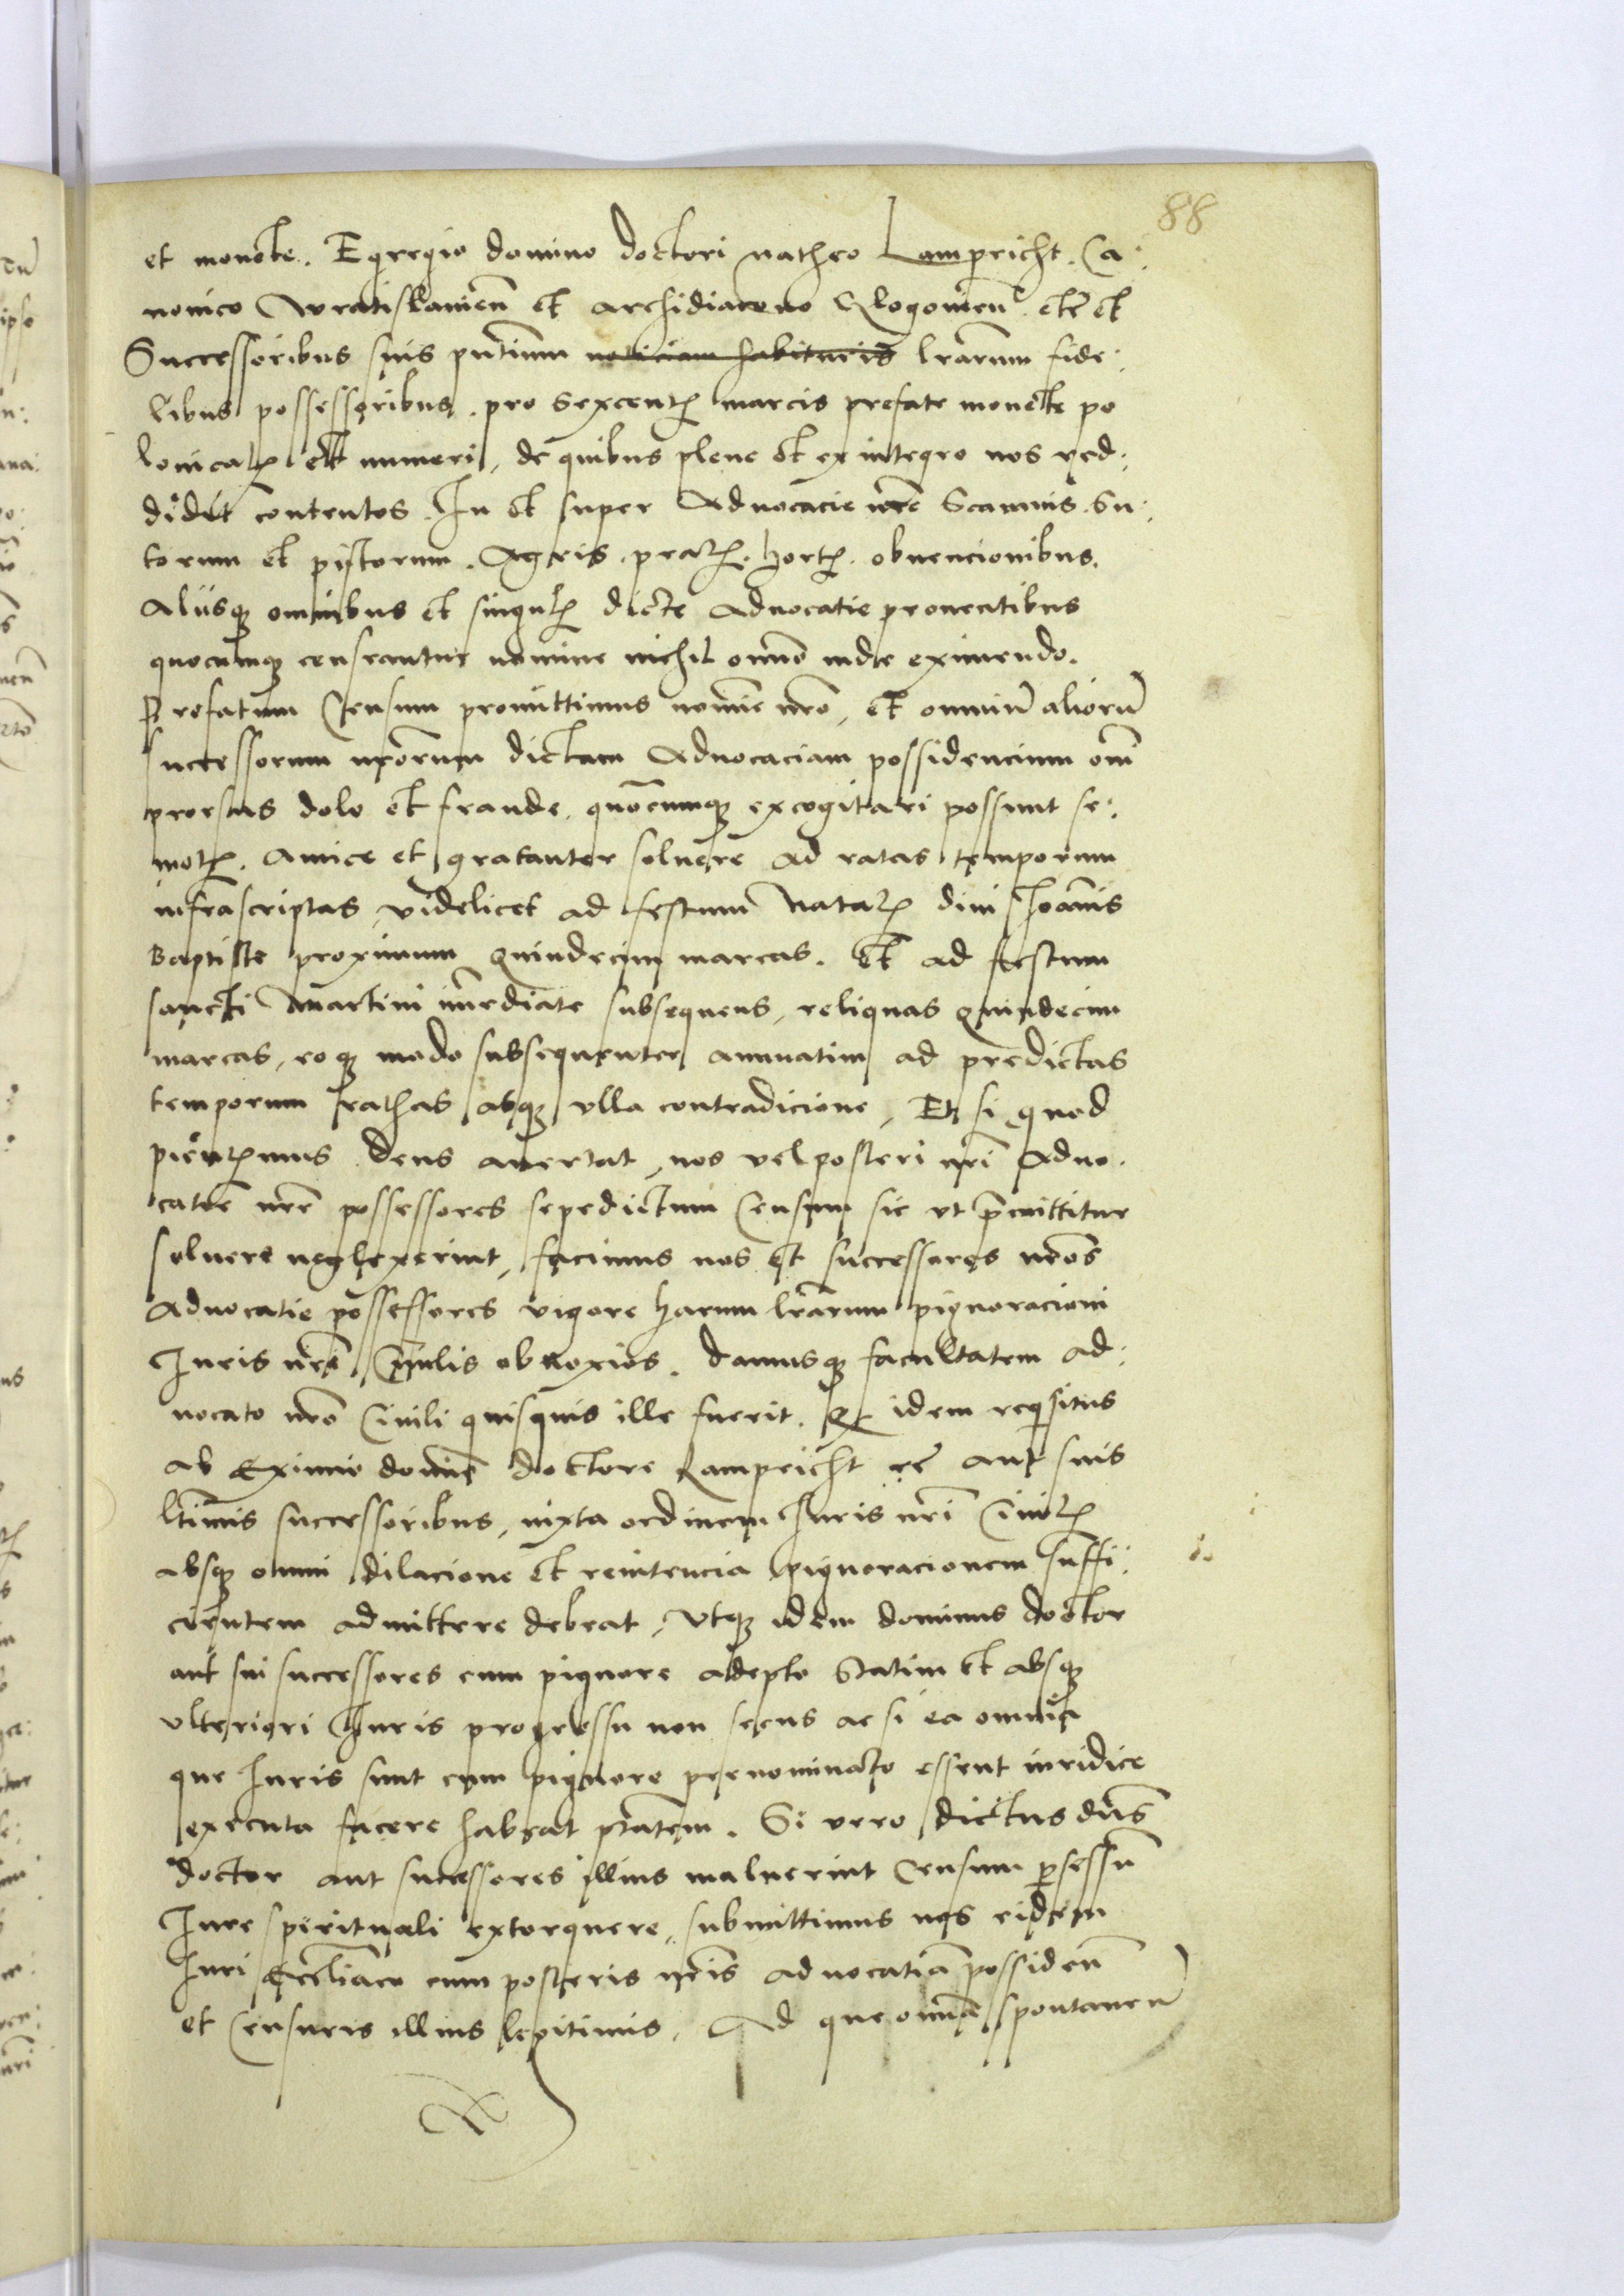 88
et monete. Egregio domino doctori matheo Lampricht. Ca:
nonico Wratislauien̄ et archidiacono Glogouien̄ etc̄ et
Successoribus suis pn̄tium noticiam habituris lr̄arum fide:
libus possessoribus. pro Sexcentꝭ marcis prefate monete po
lonicalꝭ et numeri, de quibus plene et ex integro nos red:
didit contentos. In et super Aduocacie nr̄e Scamnis Su:
torum et pistorum. Agris. pratꝭ. hortꝭ. obuencionibus.
Aliisqꝫ omnibus et singulꝭ dicte aduocatie prouentibus
quocumqꝫ censeantur nomine nichil om̄o inde eximendo.
Prefatum Censum promittimus nomīe nr̄o, et omniū aliorū
successorum nr̄orum dictam Aduocaciam possidencium om̄i
prorsus dolo et fraude. quōcumqꝫ excogitari possunt se:
motꝭ. Amice et gratanter soluere ad ratas temporum
infrascriptas, videlicet ad festum Natalꝭ diui Joānis
Baptiste proximum quindecim marcas. Et ad festum
sancti Martini īmediate subsequens, reliquas quindecim
marcas, eoqꝫ modo subsequenter annuatim ad predictas
temporum rathas absqꝫ vlla contradicione, Et si quod
pientꝭimus deus auertat, nos vel posteri nr̄i Aduo:
catie nr̄e possessores sepedictum Censum sic vt p̄mittitur
soluere neglexerint, facimus nos et successores nr̄os
Aduocatie possessores vigore harum lr̄arum pignoracioni
Juris nr̄i Ciuilis obnoxios. damusqꝫ facultatem ad:
uocato nr̄o Ciuili quisquis ille fuerit. qꝫ idem reqisitus
ab Eximio domīo doctore Lampricht etc̄ aut suis
ltīmis successoribus, iuxta ordinem Juris nr̄i Ciuilꝭ
absqꝫ omni dilacione et renitencia pignoracionem suffi:
cientem admittere debeat, Vtqꝫ idem dominus doctor
aut sui successores cum pignore adepto statim et absqꝫ
vlteriori Juris progressu non secus ac si ea omnia
que Juris sunt cum pignore prenominato essent iuridice
executa facere habeat ptātem. Si vero dictus dn̄s
doctor aut sucessores illius maluerint Censum p̄sessū
Jure spirituali extorquere, submittimus nos eidem
Juri Eccliāco cum posteris nr̄is aduocatiā possiden̄
et Censuris illius legitimis. Ad que omīa spontaneū